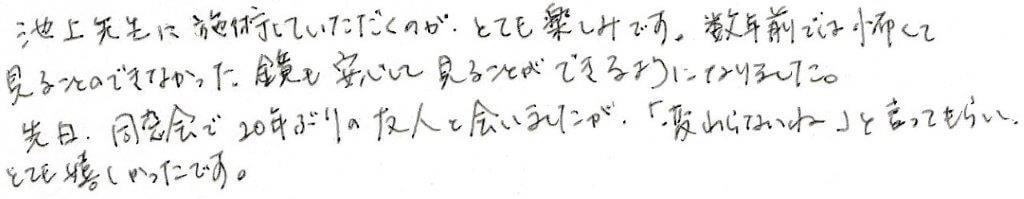 池上先生に施術していただくのが、とても楽しみです。数年前では怖くて
見ることのできなかった鏡も安心して見ることができるようになりました。
先日、同窓会で20年ぶりの友人と会いましたが、「変わらないね」と言ってもらい、
とても嬉しかったです。